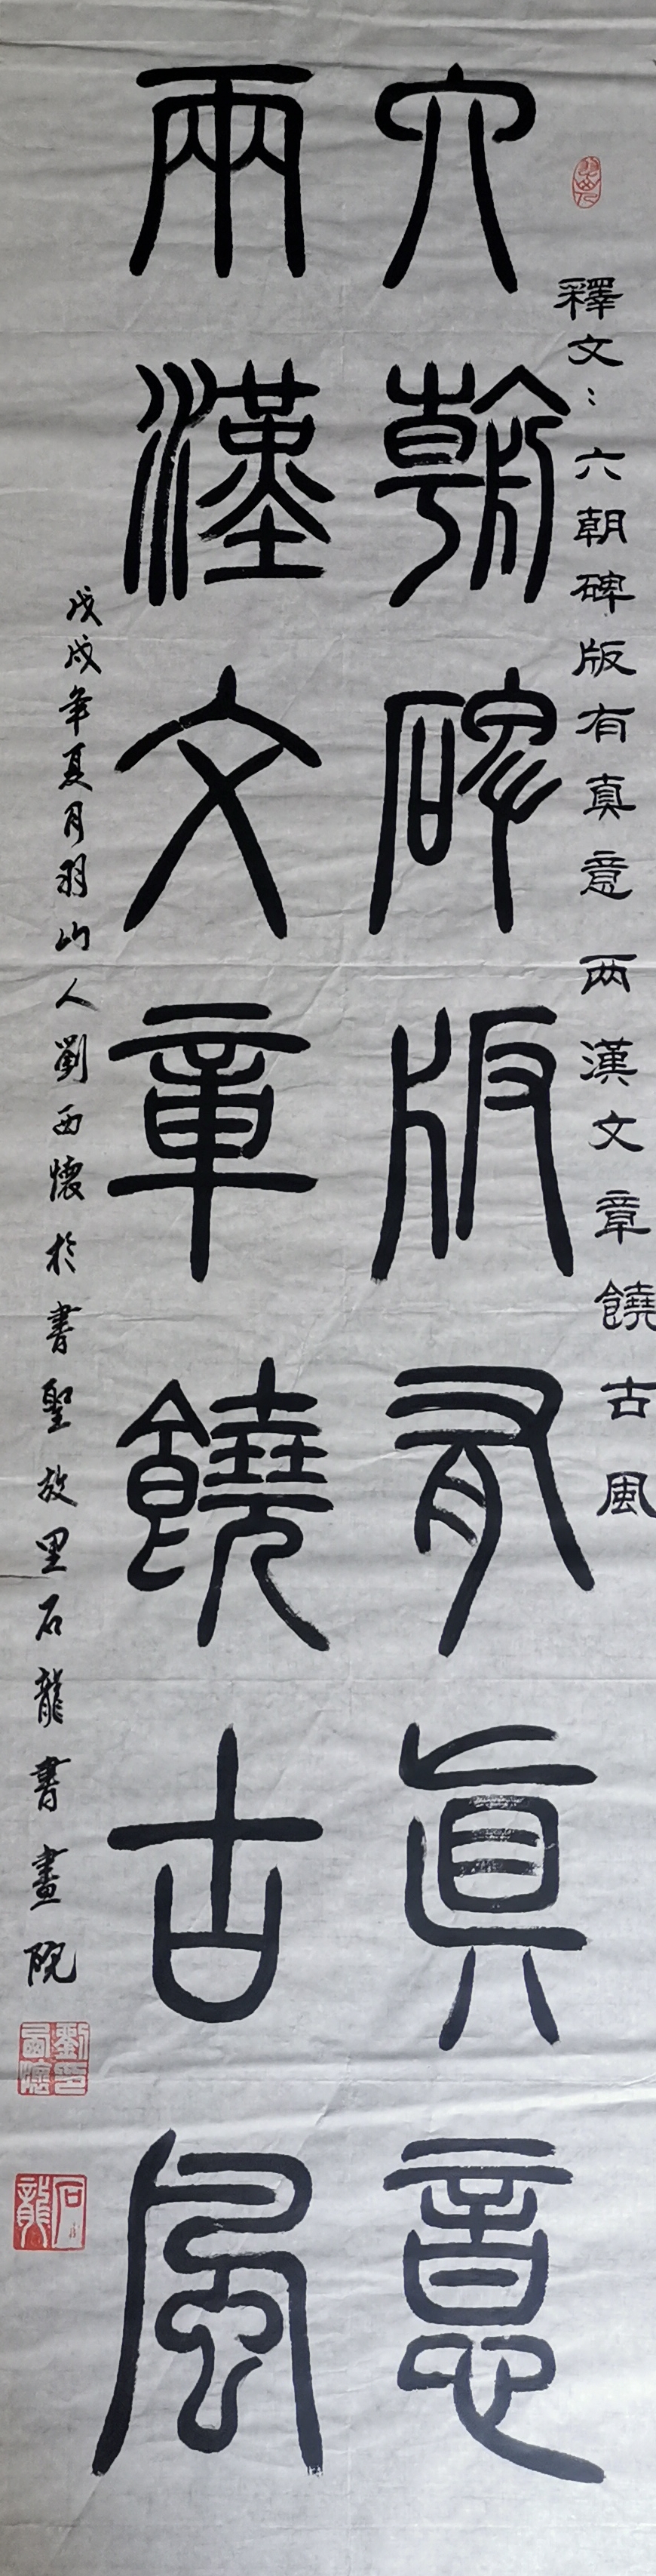 釋文：六朝碑版有真意 两漢文章饒古風
六朝碑版有眞意
兩漢文章饒古風
戊戌年夏月羽山人劉西懷於書聖故里石龍書畫院
劉西懷印
石龍